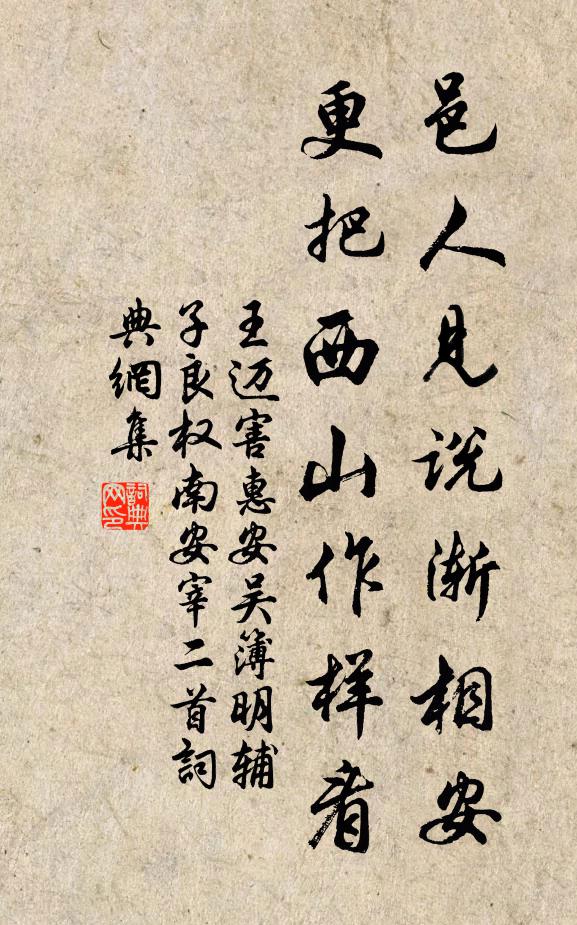 邑人見说渐相安
更把西山作样看
王迈害惠安吴簿明辅
子良权南安宰二首詞
典網集
詞典
网印